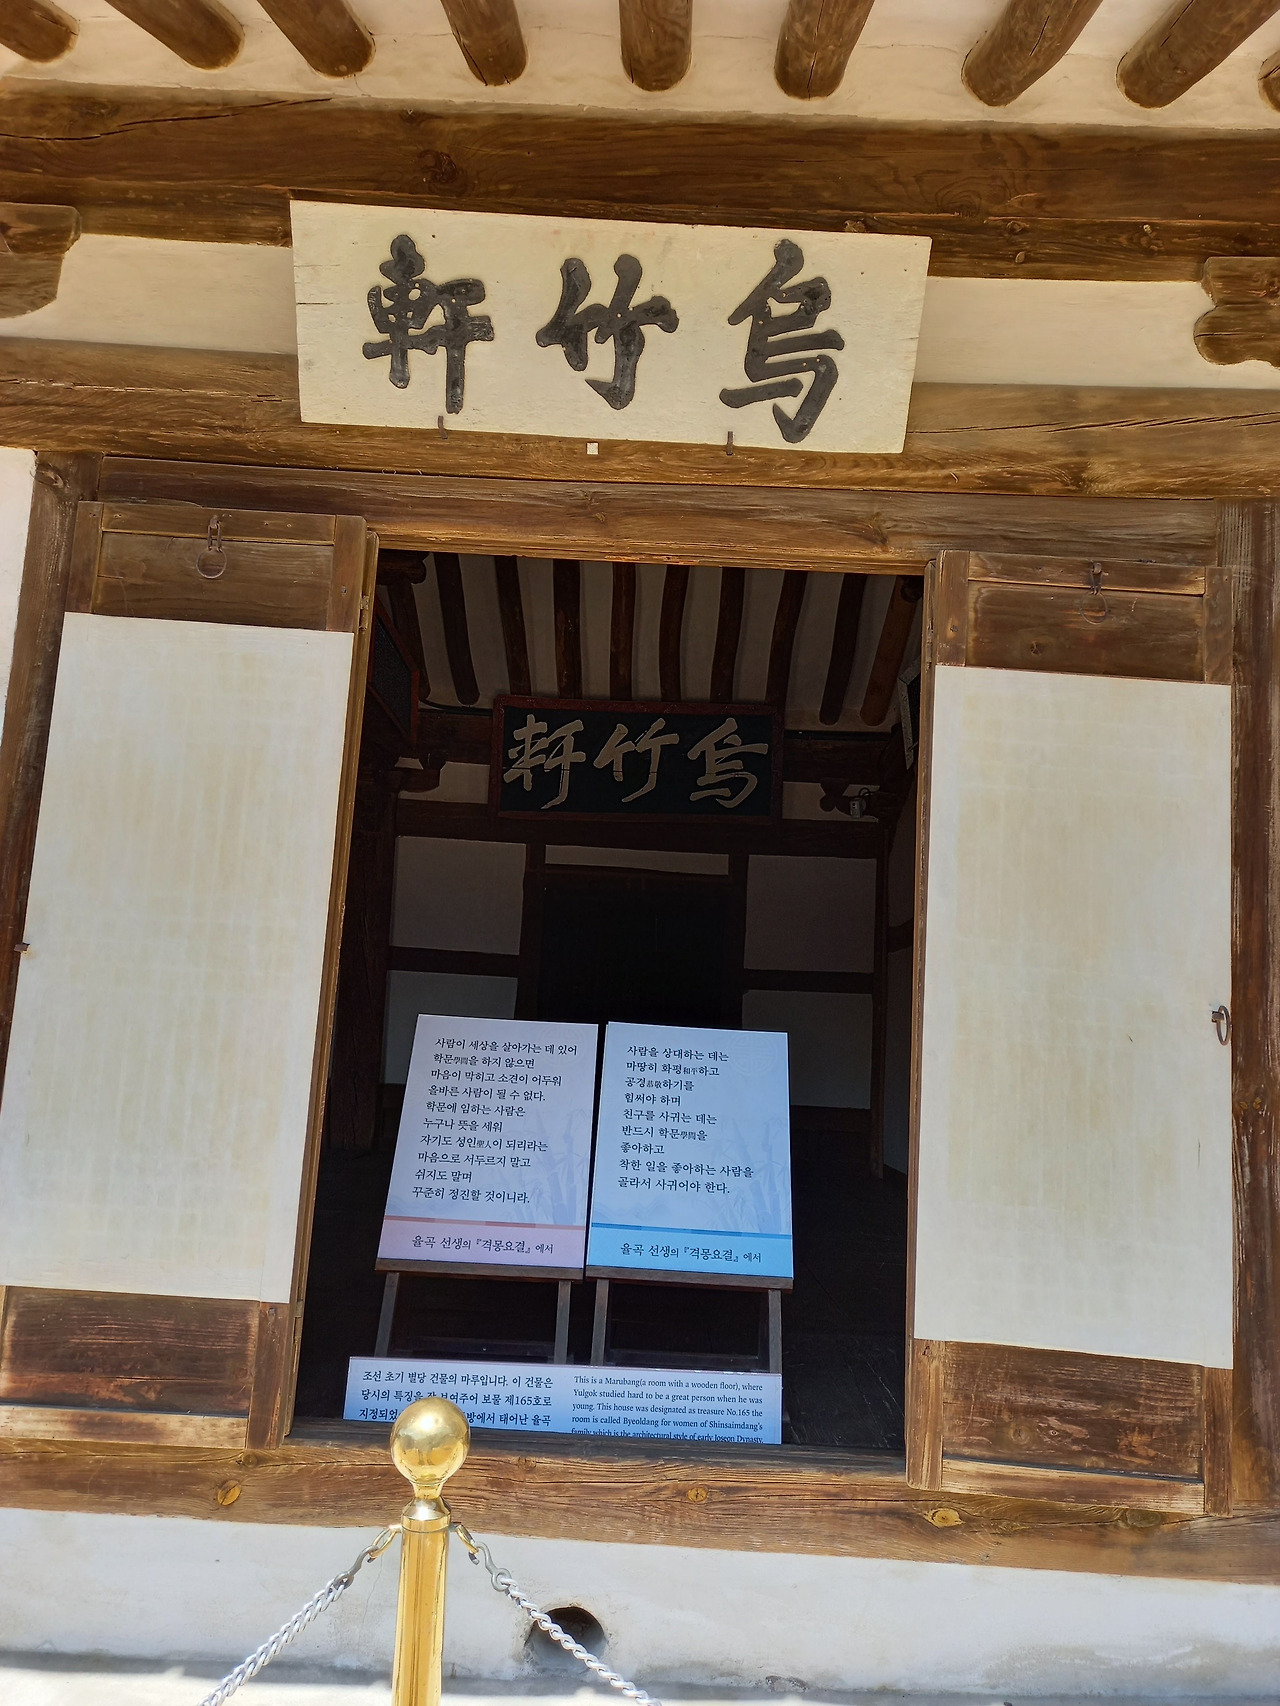 烏竹軒
烏竹軒
사람이 세상을 살아가는 데 있어
학문學問을 하지 않으면
마음이 막히고 소견이 어두워
올바른 사람이 될 수 없다.
학문에 임하는 사람은
누구나 뜻을 세워
자기도 성인聖人이 되리라는
마음으로 서두르지 말고
쉬지도 말며
꾸준히 정진할 것이니라.
율곡 선생의 『격몽요결』에서
사람을 상대하는 데는
마땅히 화평和平하고
공경恭敬하기를
힘써야 하며
친구를 사귀는 데는
반드시 학문學問을
좋아하고
착한 일을 좋아하는 사람을
골라서 사귀어야 한다.
율곡 선생의 『격몽요결』에서
조선 초기 별당 건물의 마루입니다. 이 건물은
당시의 특징을 잘 보여주어 보물 제165호로
지정되었 방에서 태어난 율곡
This is a Marubang(a room with a wooden floor), where
Yulgok studied hard to be a great person when he was
young. This house was designated as treasure No.165 the
room is called Byeoldang for women of Shinsaimdang's
family which is the architectural style of early Joseon Dynasty.